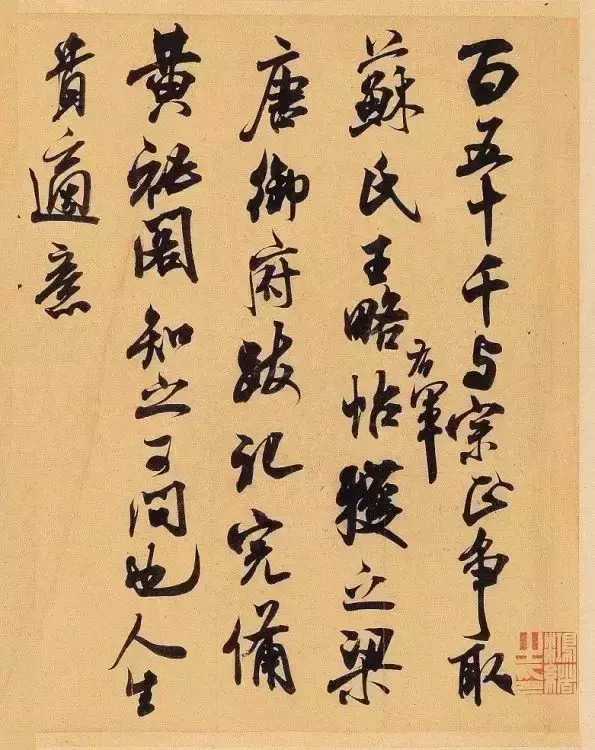 百五十千与宗正爭取
蘇氏王略帖獲之梁
右軍
唐御府跋記完備
黃祕閣知之可問也人生
貴適意